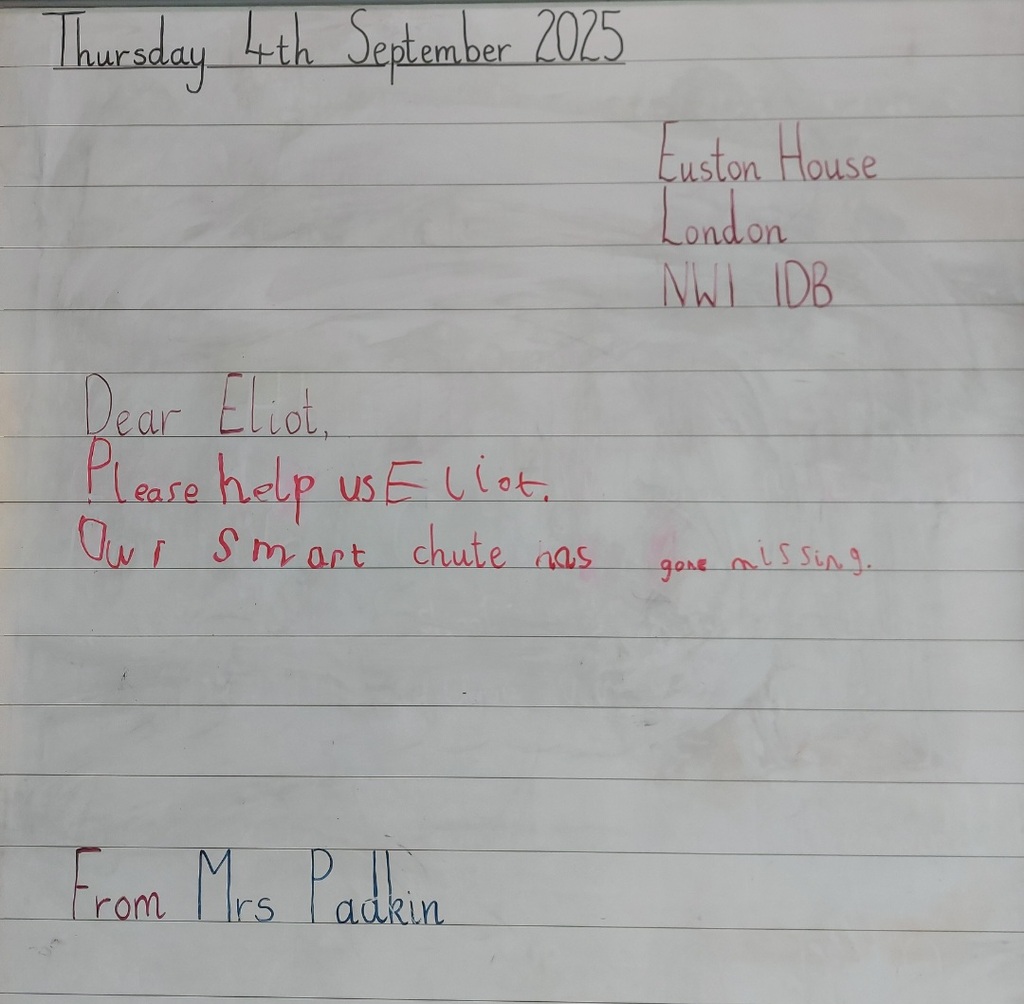 Thursday 4th September 2025
Euston House
London
NW1 1DB
Dear Eliot,
Please help us Eliot.
Our smart chute has gone missing.
From Mrs Padkin